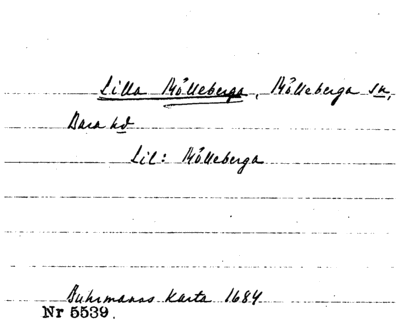 Lilla Mölleberga, Mölleberga sn,
Bara hd
Lil: Mölleberga
Buhrmanns karta 1684
Nr 5539.